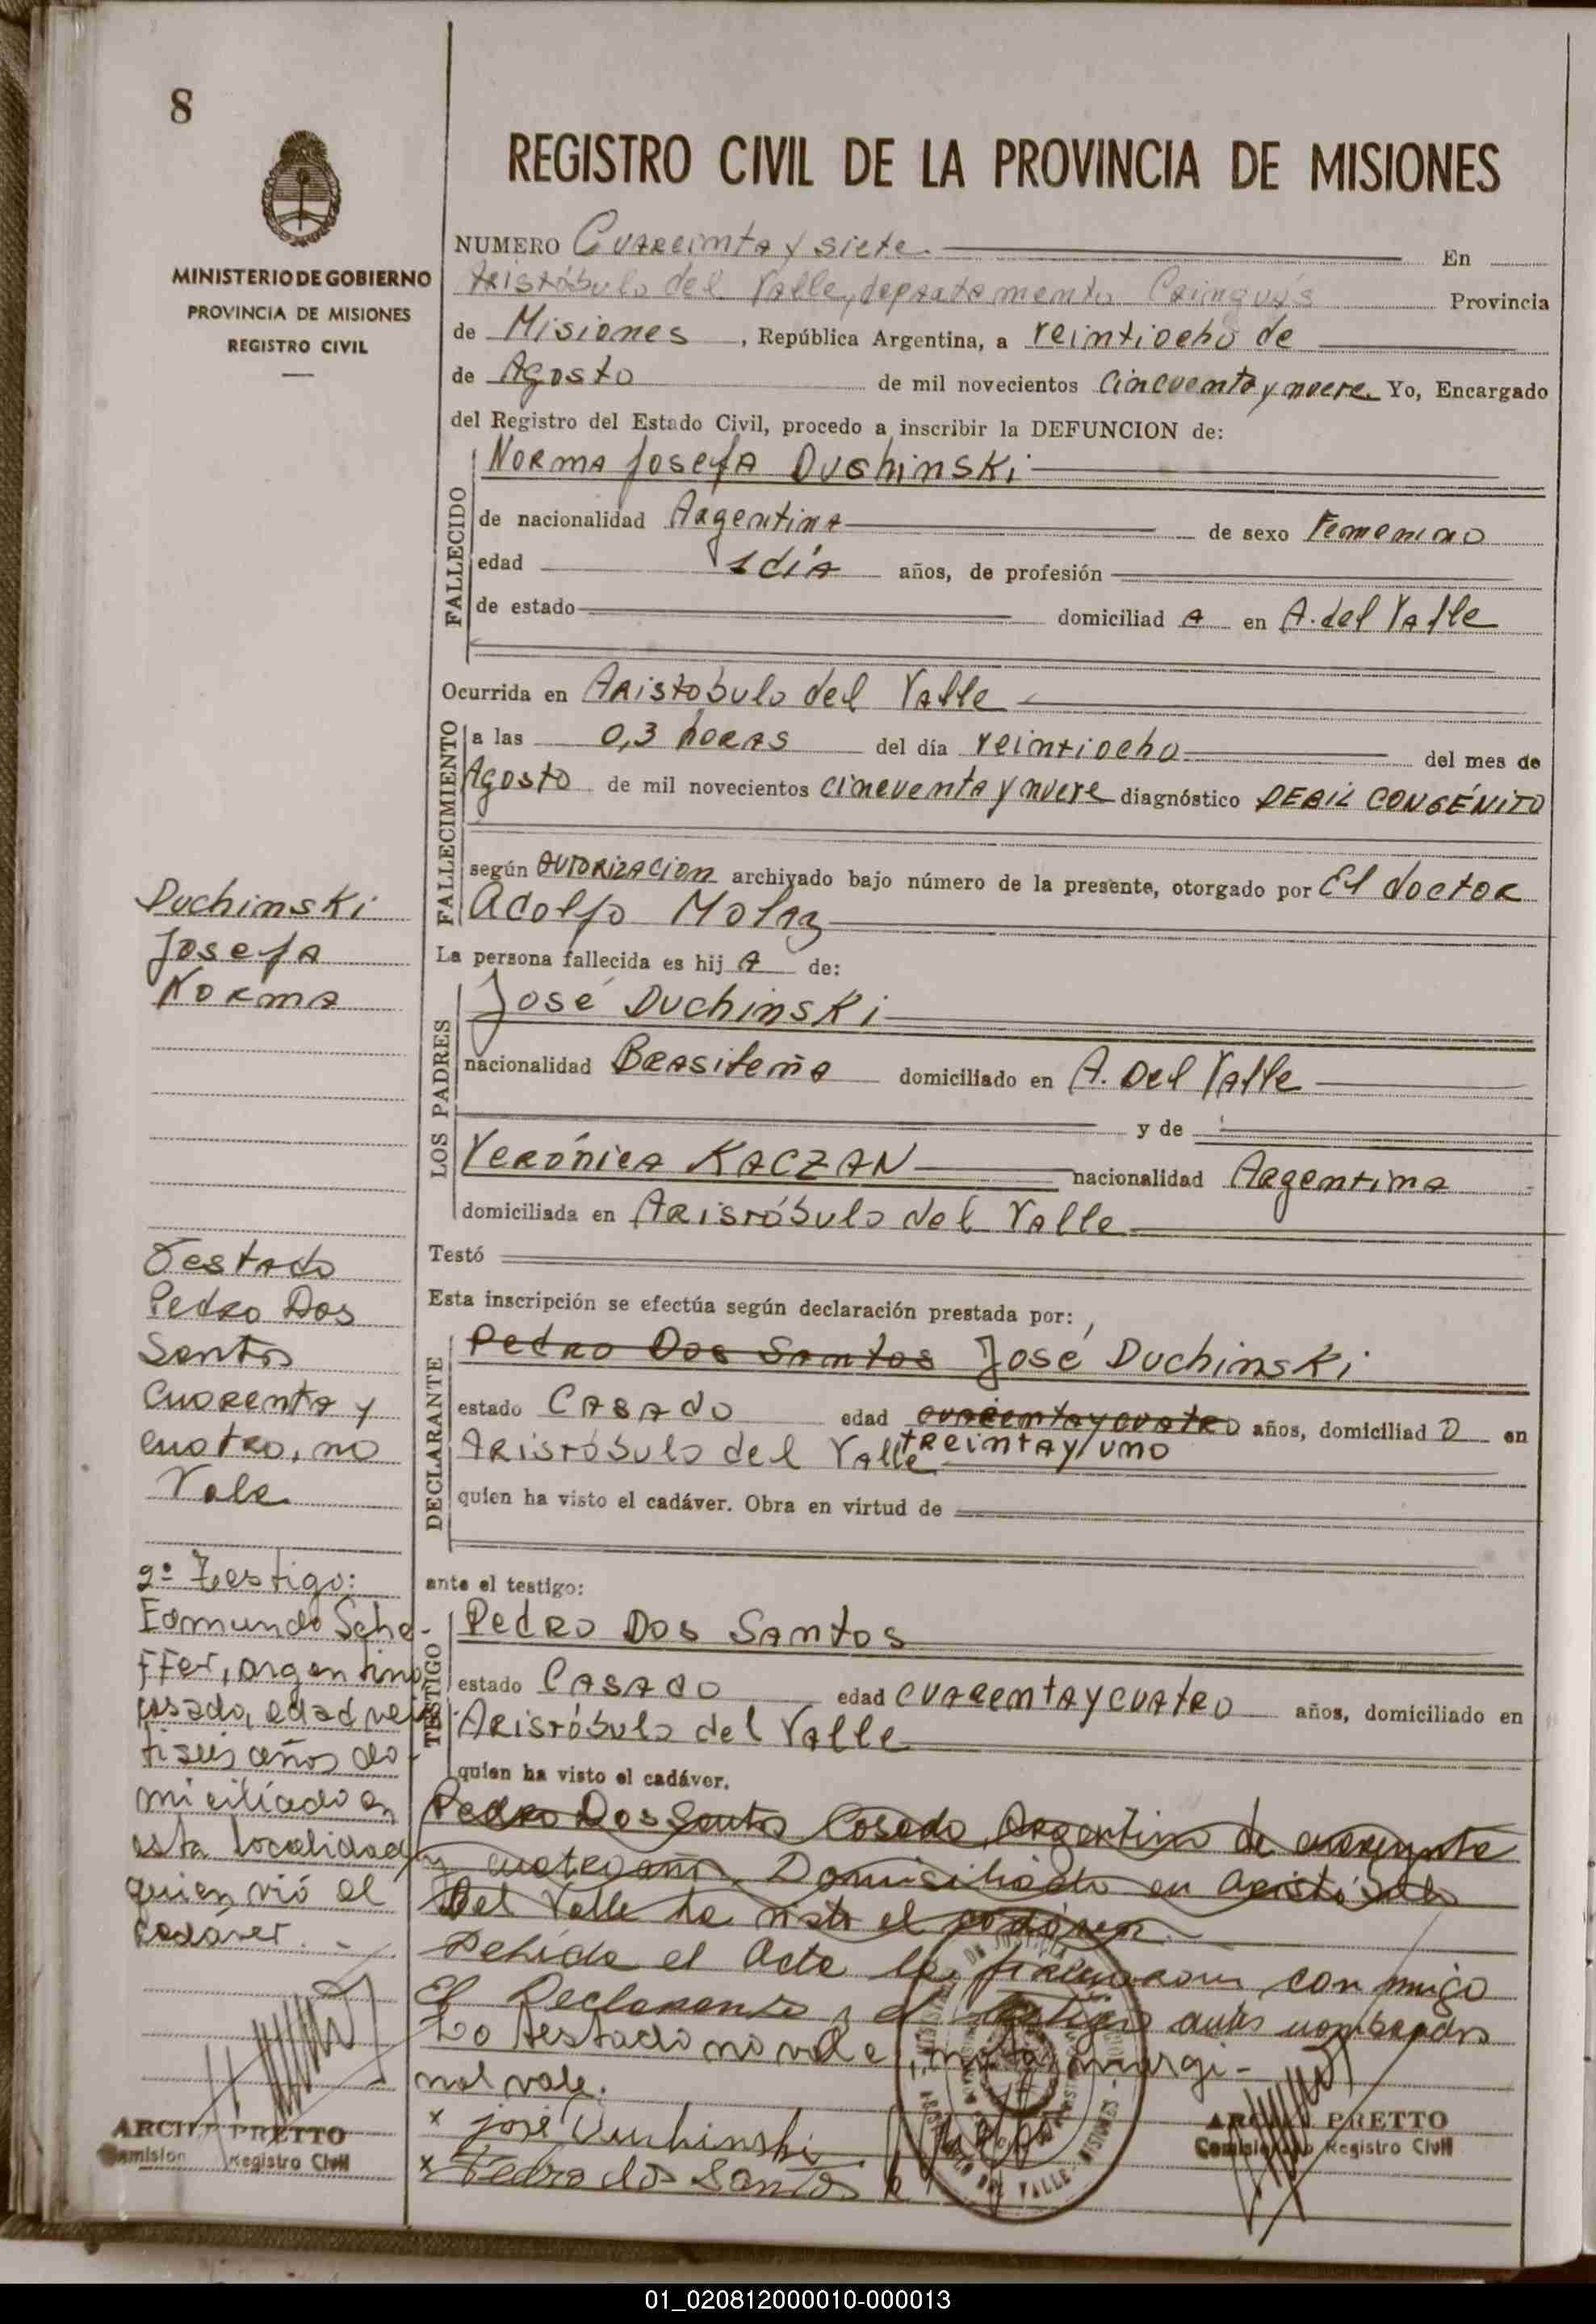 8
REGISTRO CIVIL DE LA PROVINCIA DE MISIONES
MINISTERIO DE GOBIERNO
PROVINCIA DE MISIONES
REGISTRO CIVIL
NUMERO Cuareinta y siete En
Aristóbulo del Valle, departamento Cainguás Provincia
de Misiones, República Argentina, a veintiocho de
de Agosto de mil novecientos cincuenta y nueve. Yo, Encargado
del Registro del Estado Civil, procedo a inscribir la DEFUNCION de:
Norma Josefa Duchinski
FALLECIDO
de nacionalidad Argentina de sexo Femenino
edad 1 día años, de profesión
de estado domiciliad A en A. del Valle
Ocurrida en Aristobulo del Valle
FALLECIMIENTO
a las 0,3 horas del día veintiocho del mes de
Agosto de mil novecientos cincuenta y nueve diagnóstico DEBIL CONGÉNITO
según autorizacion archivado bajo número de la presente, otorgado por El doctor
Adolfo
La persona fallecida es hij A de:
LOS PADRES
José Duchinski
nacionalidad Brasileña domiciliado en A. Del Valle
y de
Verónica KACZAN nacionalidad Argentina
domiciliada en Aristóbulo del Valle
Testó
Esta inscripción se efectúa según declaración prestada por:
DECLARANTE
Pedro Dos Santos José Duchinski
estado Casado edad cuarenta y cuatro años, domiciliad O en
treinta y uno
Aristóbulo del Valle
quien ha visto el cadáver. Obra en virtud de
ante el testigo:
TESTIGO
Pedro Dos Santos
estado Casado edad cuarenta y cuatro años, domiciliado en
Aristóbulo del Valle
quien ha visto el cadáver.
Pedro Dos Santos Casado Argentino de cuarenta
y cuatro años Domisiliado en Aristóbulo
Del Valle ha visto el cadáver
el Acta la firmaron con migo
El Declarante y el testigo antes nombrados
Lo testado no vale, nota margi-
nal vale.
x josé Duchinski
x Pedro dos Santos
Duchinski
Josefa
Norma
Testado
Pedro Dos
Santos
Cuarenta y
cuatro, no
Vale
2º Testigo:
Edmundo Sche-
ffer, argentino,
casado, edad vein
tiseis años do-
miciliado en
esta localidad
quien vió el
cadáver.-
ARCI PRETTO
Comision Registro Civil
PRETTO
Comisionado Registro Civil
DEL VALLE - MISIONES
01_020812000010-000013